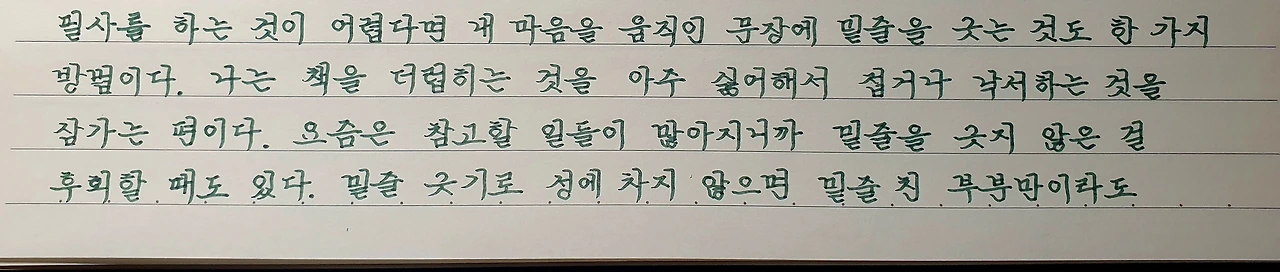 필사를 하는 것이 어렵다면 내 마음을 움직인 문장에 밑줄을 긋는 것도 한 가지
방법이다. 나는 책을 더럽히는 것을 아주 싫어해서 접거나 낙서하는 것을
삼가는 편이다. 요즘은 참고할 일들이 많아지니까 밑줄을 긋지 않은 걸
후회할 때도 있다. 밑줄 긋기로 성에 차지 않으면 밑줄 친 부분만이라도